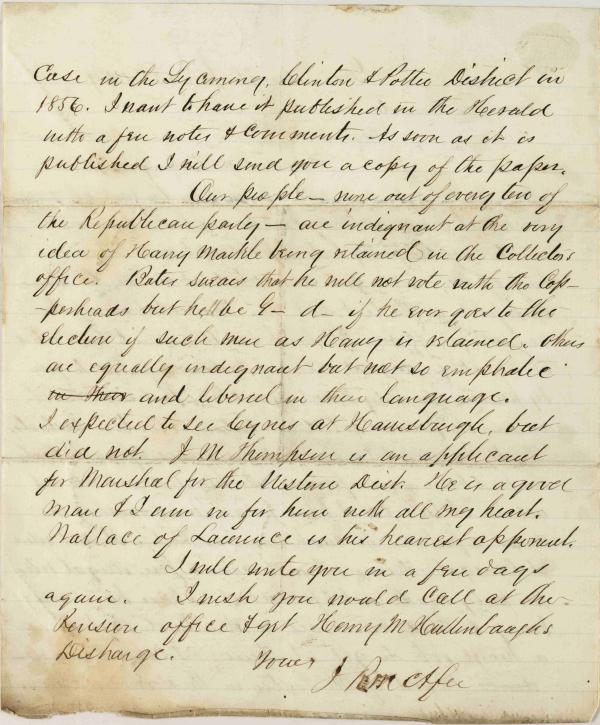 Case in the Lycoming, Clinton & Potter District in
1856. I want to have it published in the Herald
with a few notes & comments. As soon as it is
published I will send you a copy of the paper.
Our people – nine out of every ten of
the Republican party – are indignant at the very
idea of Harry Markle being retained in the Collectors
office. Bates swears that he will not vote with the Cop-
-perheads but he'll be G– d– if he ever goes to the
election if such men as Harry is retained. Others
are equally indignant but not so emphatic
in their and liberal in their language.
I expected to see Cyrus at Harrisburgh, but
did not. J M Thompson is an applicant
for Marshal for the Western Dist. He is a good
man & I am in for him with all my heart.
Wallace of Lawrence is his heaviest opponent.
I will write you in a few days
again. I wish you would call at the
Pension office & get Henry M Hullenbaugh's
Discharge.
Yours
J R McAfee